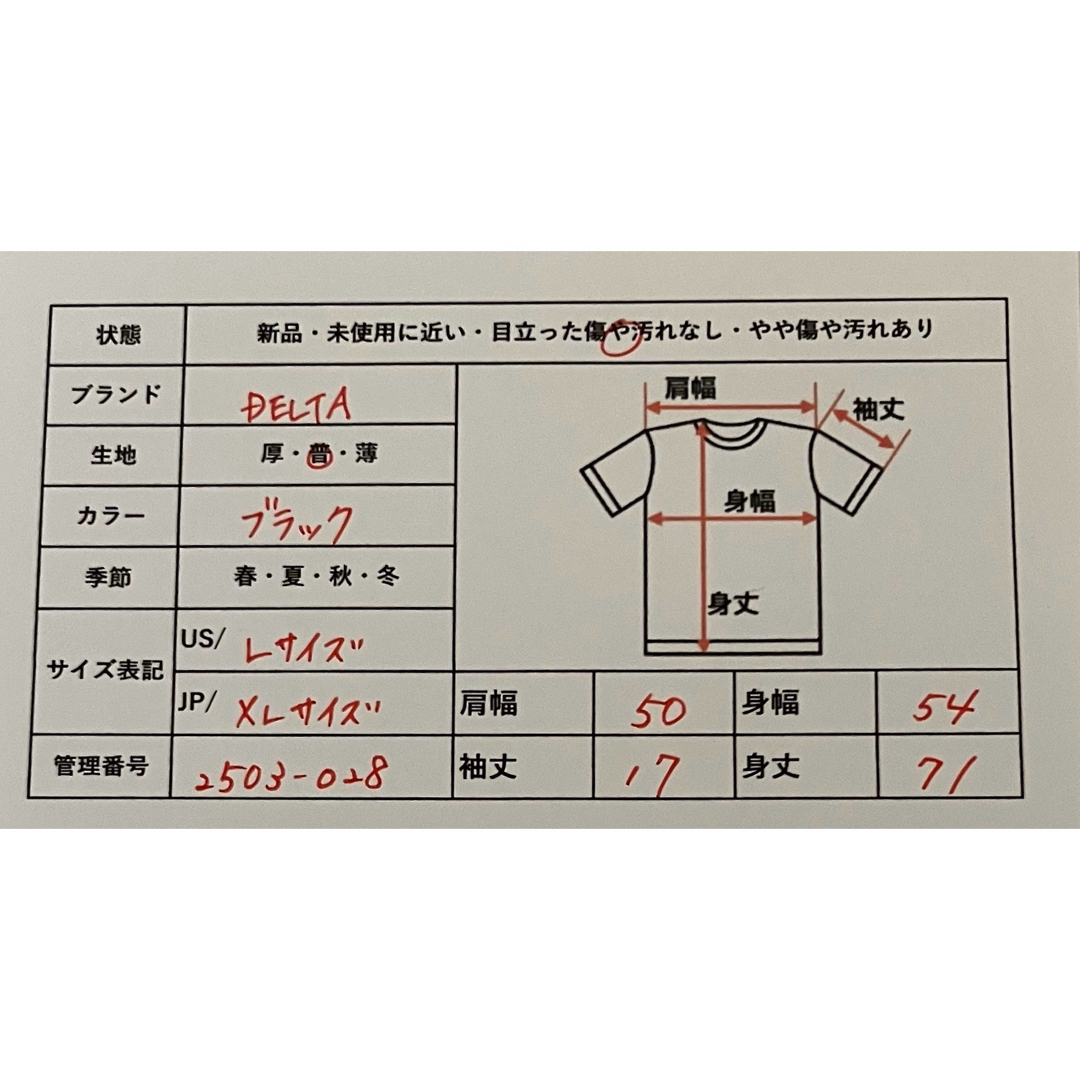 状態 新品・未使用に近い・目立った傷や汚れなし・やや傷や汚れあり
ブランド DELTA
生地 厚・普・薄
カラー ブラック
季節 春・夏・秋・冬
サイズ表記 US/ Lサイズ
JP/ XLサイズ
管理番号 2503-028
肩幅
袖丈
身幅
身丈
肩幅 50 身幅 54
袖丈 17 身丈 71